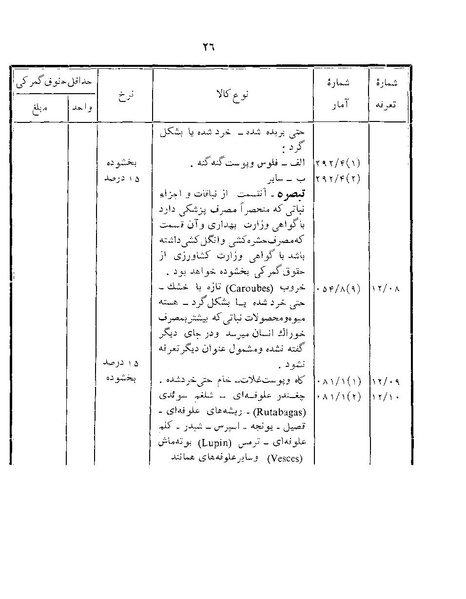 ۲۶
شمارهٔ تعرفه | شمارهٔ آمار | نوع کالا | نرخ | حداقل حقوق گمرکی
واحد | مبلغ
حتی بریده شده ـ خرد شده یا بشکل
گرد :
۲۹۲/۴(۱) | الف ـ فلوس وپوست گنه گنه . | بخشوده
۲۹۲/۴(۲) | ب ـ سایر | ۱۵ درصد
تبصره ـ آنقسمت از نباتات و اجزاء
نباتی که منحصراً مصرف پزشکی دارد
با گواهی وزارت بهداری وآن قسمت
که مصرف حشره کشی و انگل کشی داشته
باشد با گواهی وزارت کشاورزی از
حقوق گمرکی بخشوده خواهد بود .
۱۲/۰۸ | ۰۵۴/۸(۹) | خروب (Caroubes) تازه یا خشك ـ
حتی خرد شده یا بشکل گرد ـ هسته
میوه ومحصولات نباتی که بیشتر بمصرف
خوراك انسان میرسد ودر جای دیگر
گفته نشده ومشمول عنوان دیگر تعرفه
نشود . | ۱۵ درصد
۱۲/۰۹ | ۰۸۱/۱(۱) | کاه وپوست غلات ـ خام حتی خرد شده . | بخشوده
۱۲/۱۰ | ۰۸۱/۱(۲) | چغندر علوفه‌ای ـ شلغم سوئدی
(Rutabagas) ـ ریشه‌های علوفه‌ای ـ
قصیل ـ یونجه ـ اسپرس ـ شبدر ـ کلم
علوفه‌ای ـ ترمس (Lupin) بوته ماش
(Vesces) وسایر علوفه‌های همانند